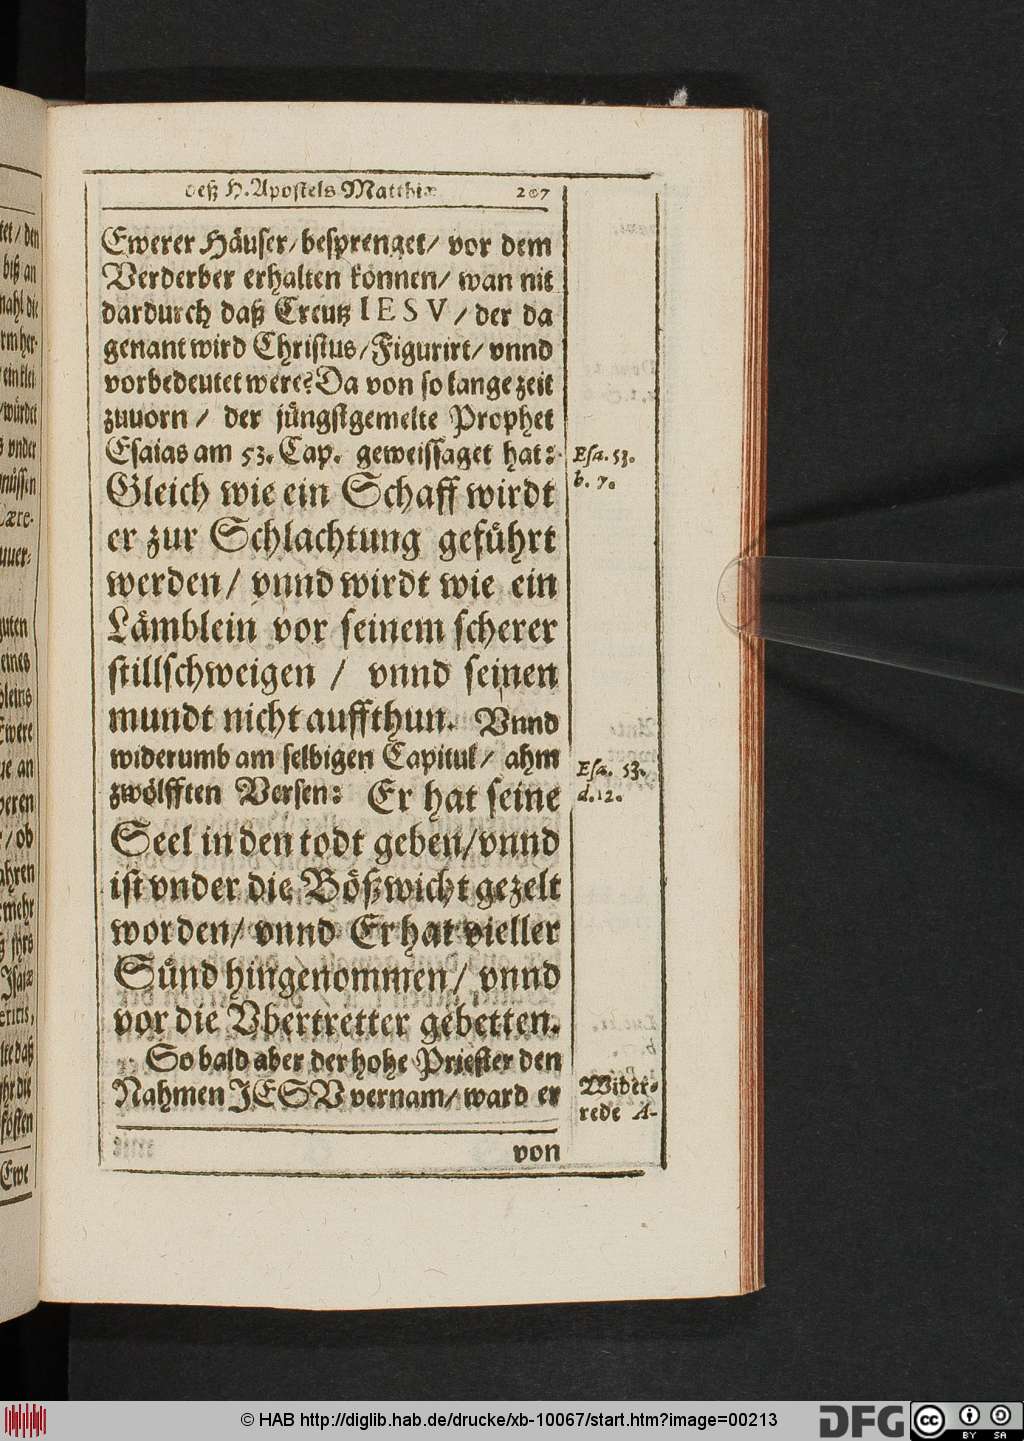 deß H. Apostels Matthiæ 207
Ewerer Häuser/ besprenget/ vor dem
Verderber erhalten können/ wan nit
dardurch daß Creutz IESV/ der da
genant wird Christus/ Figurirt/ vnnd
vorbedeutet were? Da von so lange zeit
zuuorn / der jüngstgemelte Prophet
Esaias am 53. Cap. geweissaget hat:
Esa. 53.
b. 7.
Gleich wie ein Schaff wirdt
er zur Schlachtung geführt
werden/ vnnd wirdt wie ein
Lämblein vor seinem scherer
stillschweigen / vnnd seinen
mundt nicht auffthun. Vnnd
widerumb am selbigen Capitul/ ahm
zwölfften Versen: Er hat seine
Esa. 53.
d. 12.
Seel in den todt geben/ vnnd
ist vnder die Bößwicht gezelt
worden/ vnnd Er hat vieller
Sünd hingenommen/ vnnd
vor die Vbertretter gebetten.
So bald aber der hohe Priester den
Nahmen JESV vernam/ ward er
Wider-
rede A-
von
© HAB http://diglib.hab.de/drucke/xb-10067/start.htm?image=00213
DFG
cc
BY SA